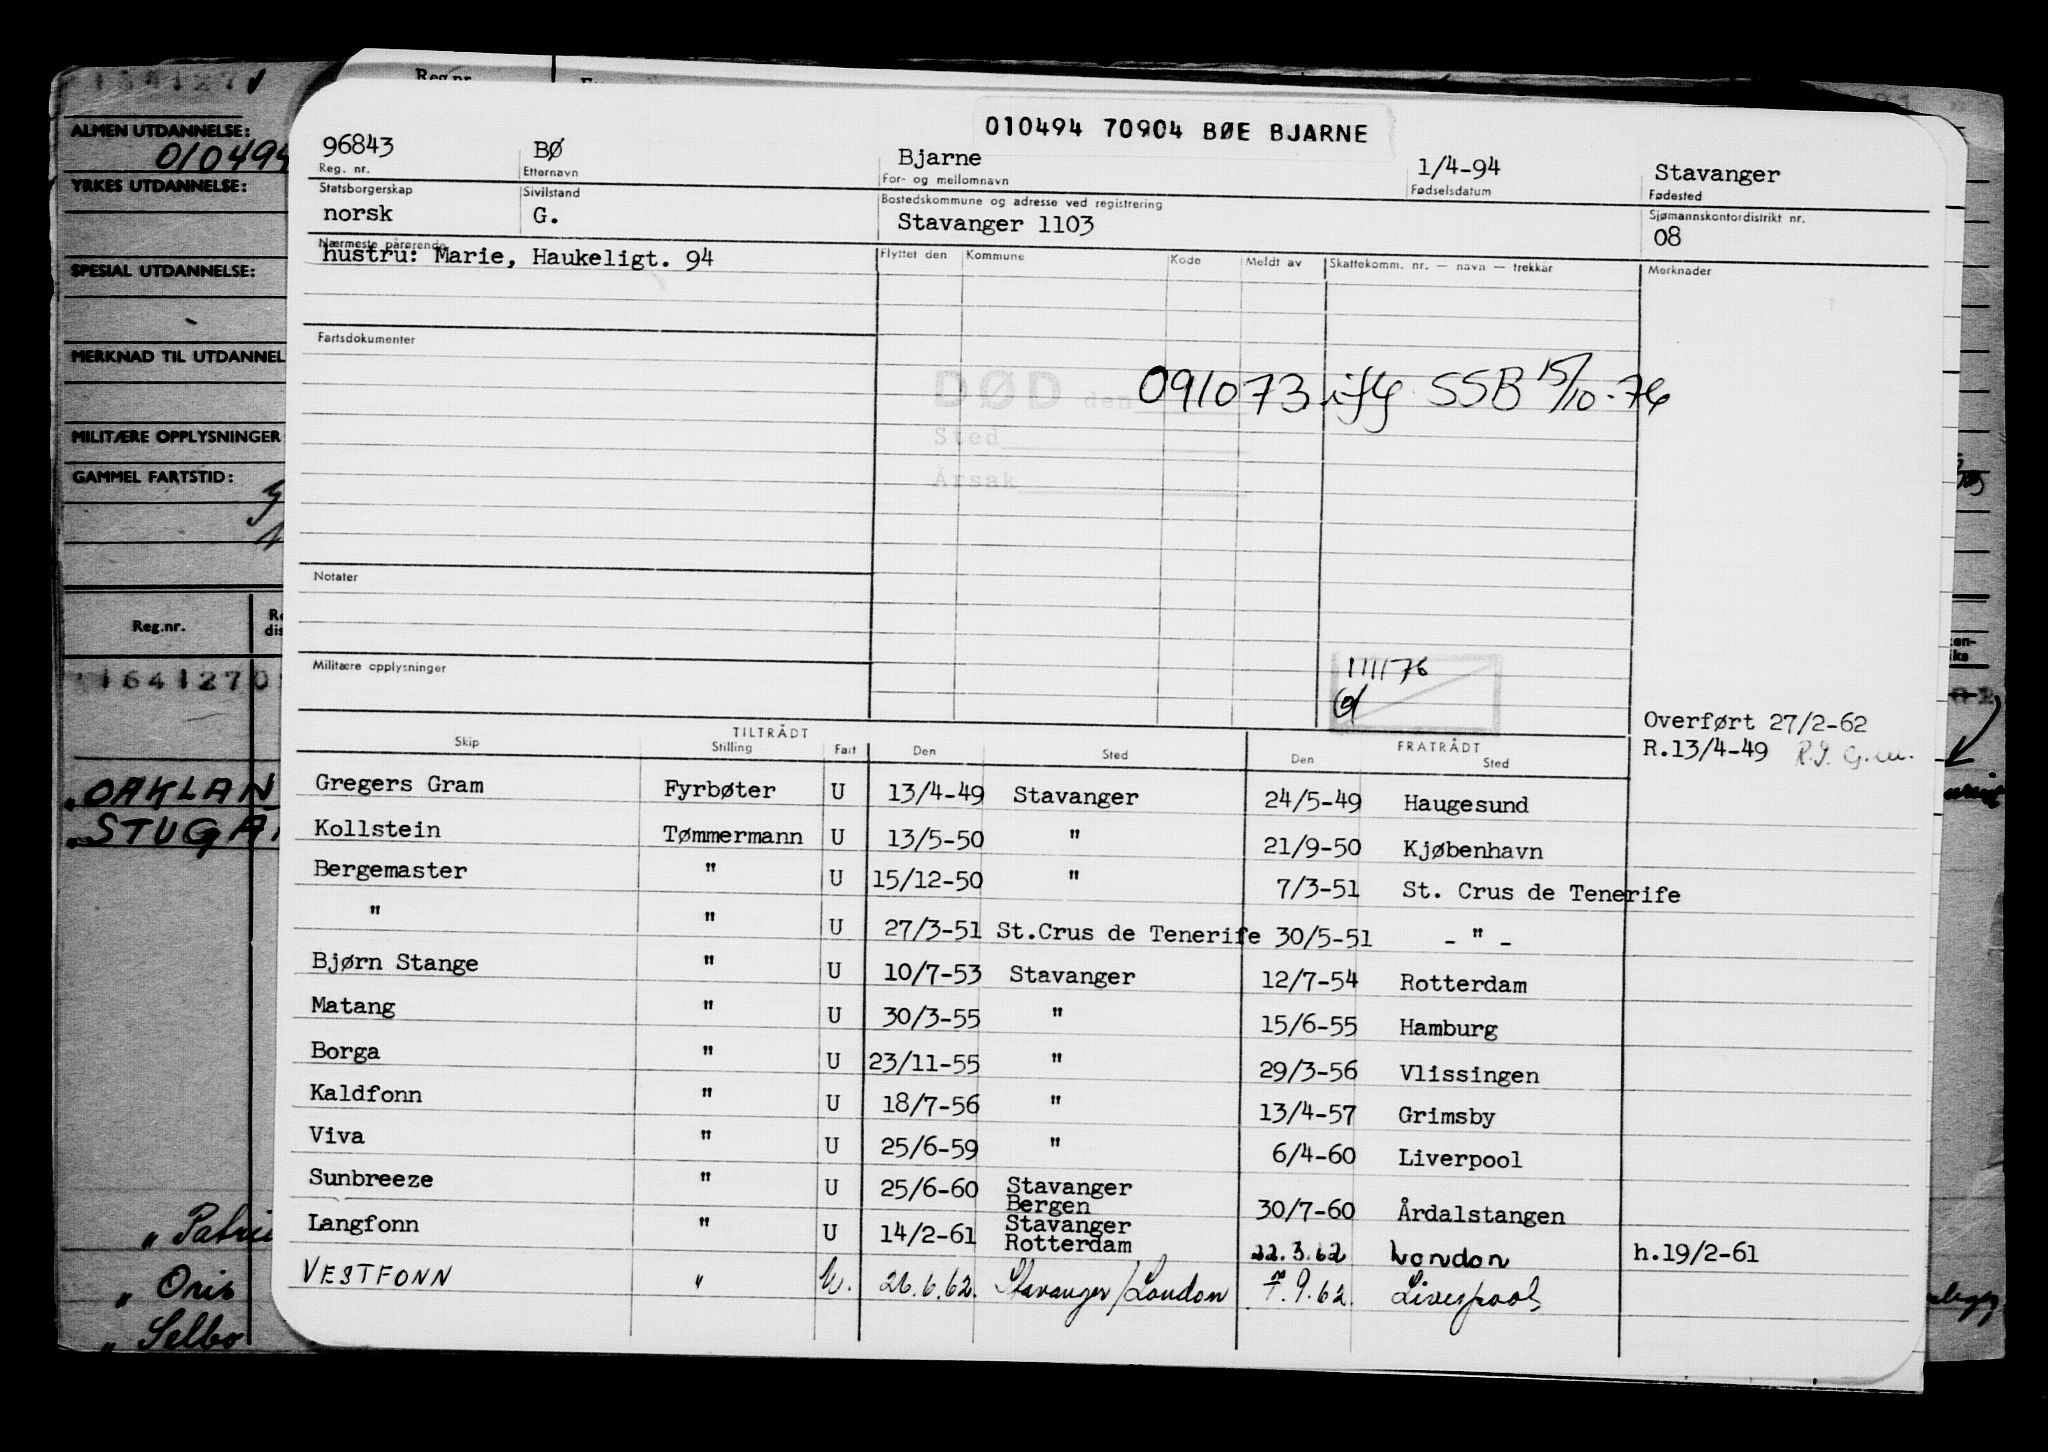 010494 70904 BØE BJARNE
96843 BØ Bjarne 1/4-94 Stavanger
Reg. nr. Etternavn For- og mellomnavn Fødselsdatum Fødested
Statsborgerskap Sivilstand Bostedskommune og adresse ved registrering Sjømannskontordistrikt nr.
norsk G. Stavanger 1103 08
Nærmeste pårørende
hustru: Marie, Haukeligt. 94
Flyttet den Kommune Kode Meldt av Skattekomm. nr. — navn — trekkar Merknader
Fartsdokumenter
DØD den
091073 iflg SSB 15/10-76
Sted
Årsak
Notater
Militære opplysninger
Overført 27/2-62
R.13/4-49
TILTRÅDT FRATRÅDT
Skip Stilling Fart Den Sted Den Sted
Gregers Gram Fyrbøter U 13/4-49 Stavanger 24/5-49 Haugesund
Kollstein Tømmermann U 13/5-50 " 21/9-50 Kjøbenhavn
Bergemaster " U 15/12-50 " 7/3-51 St. Crus de Tenerife
" " U 27/3-51 St.Crus de Tenerife 30/5-51 - " -
Bjørn Stange " U 10/7-53 Stavanger 12/7-54 Rotterdam
Matang " U 30/3-55 " 15/6-55 Hamburg
Borga " U 23/11-55 " 29/3-56 Vlissingen
Kaldfonn " U 18/7-56 " 13/4-57 Grimsby
Viva " U 25/6-59 " 6/4-60 Liverpool
Sunbreeze " U 25/6-60 Stavanger
Bergen 30/7-60 Årdalstangen
Langfonn " U 14/2-61 Stavanger
Rotterdam 22.3.62 London h.19/2-61
VESTFONN " U. 26.6.62. Stavanger/London 7.9.62. Liverpool
ALMEN UTDANNELSE:
010494
YRKES UTDANNELSE:
SPESIAL UTDANNELSE:
MERKNAD TIL UTDANNEL
MILITÆRE OPPLYSNINGER
GAMMEL FARTSTID:
Reg.nr.
164127
"OAKLAN
"STUGA
" Patri
" Oris
" Selbo